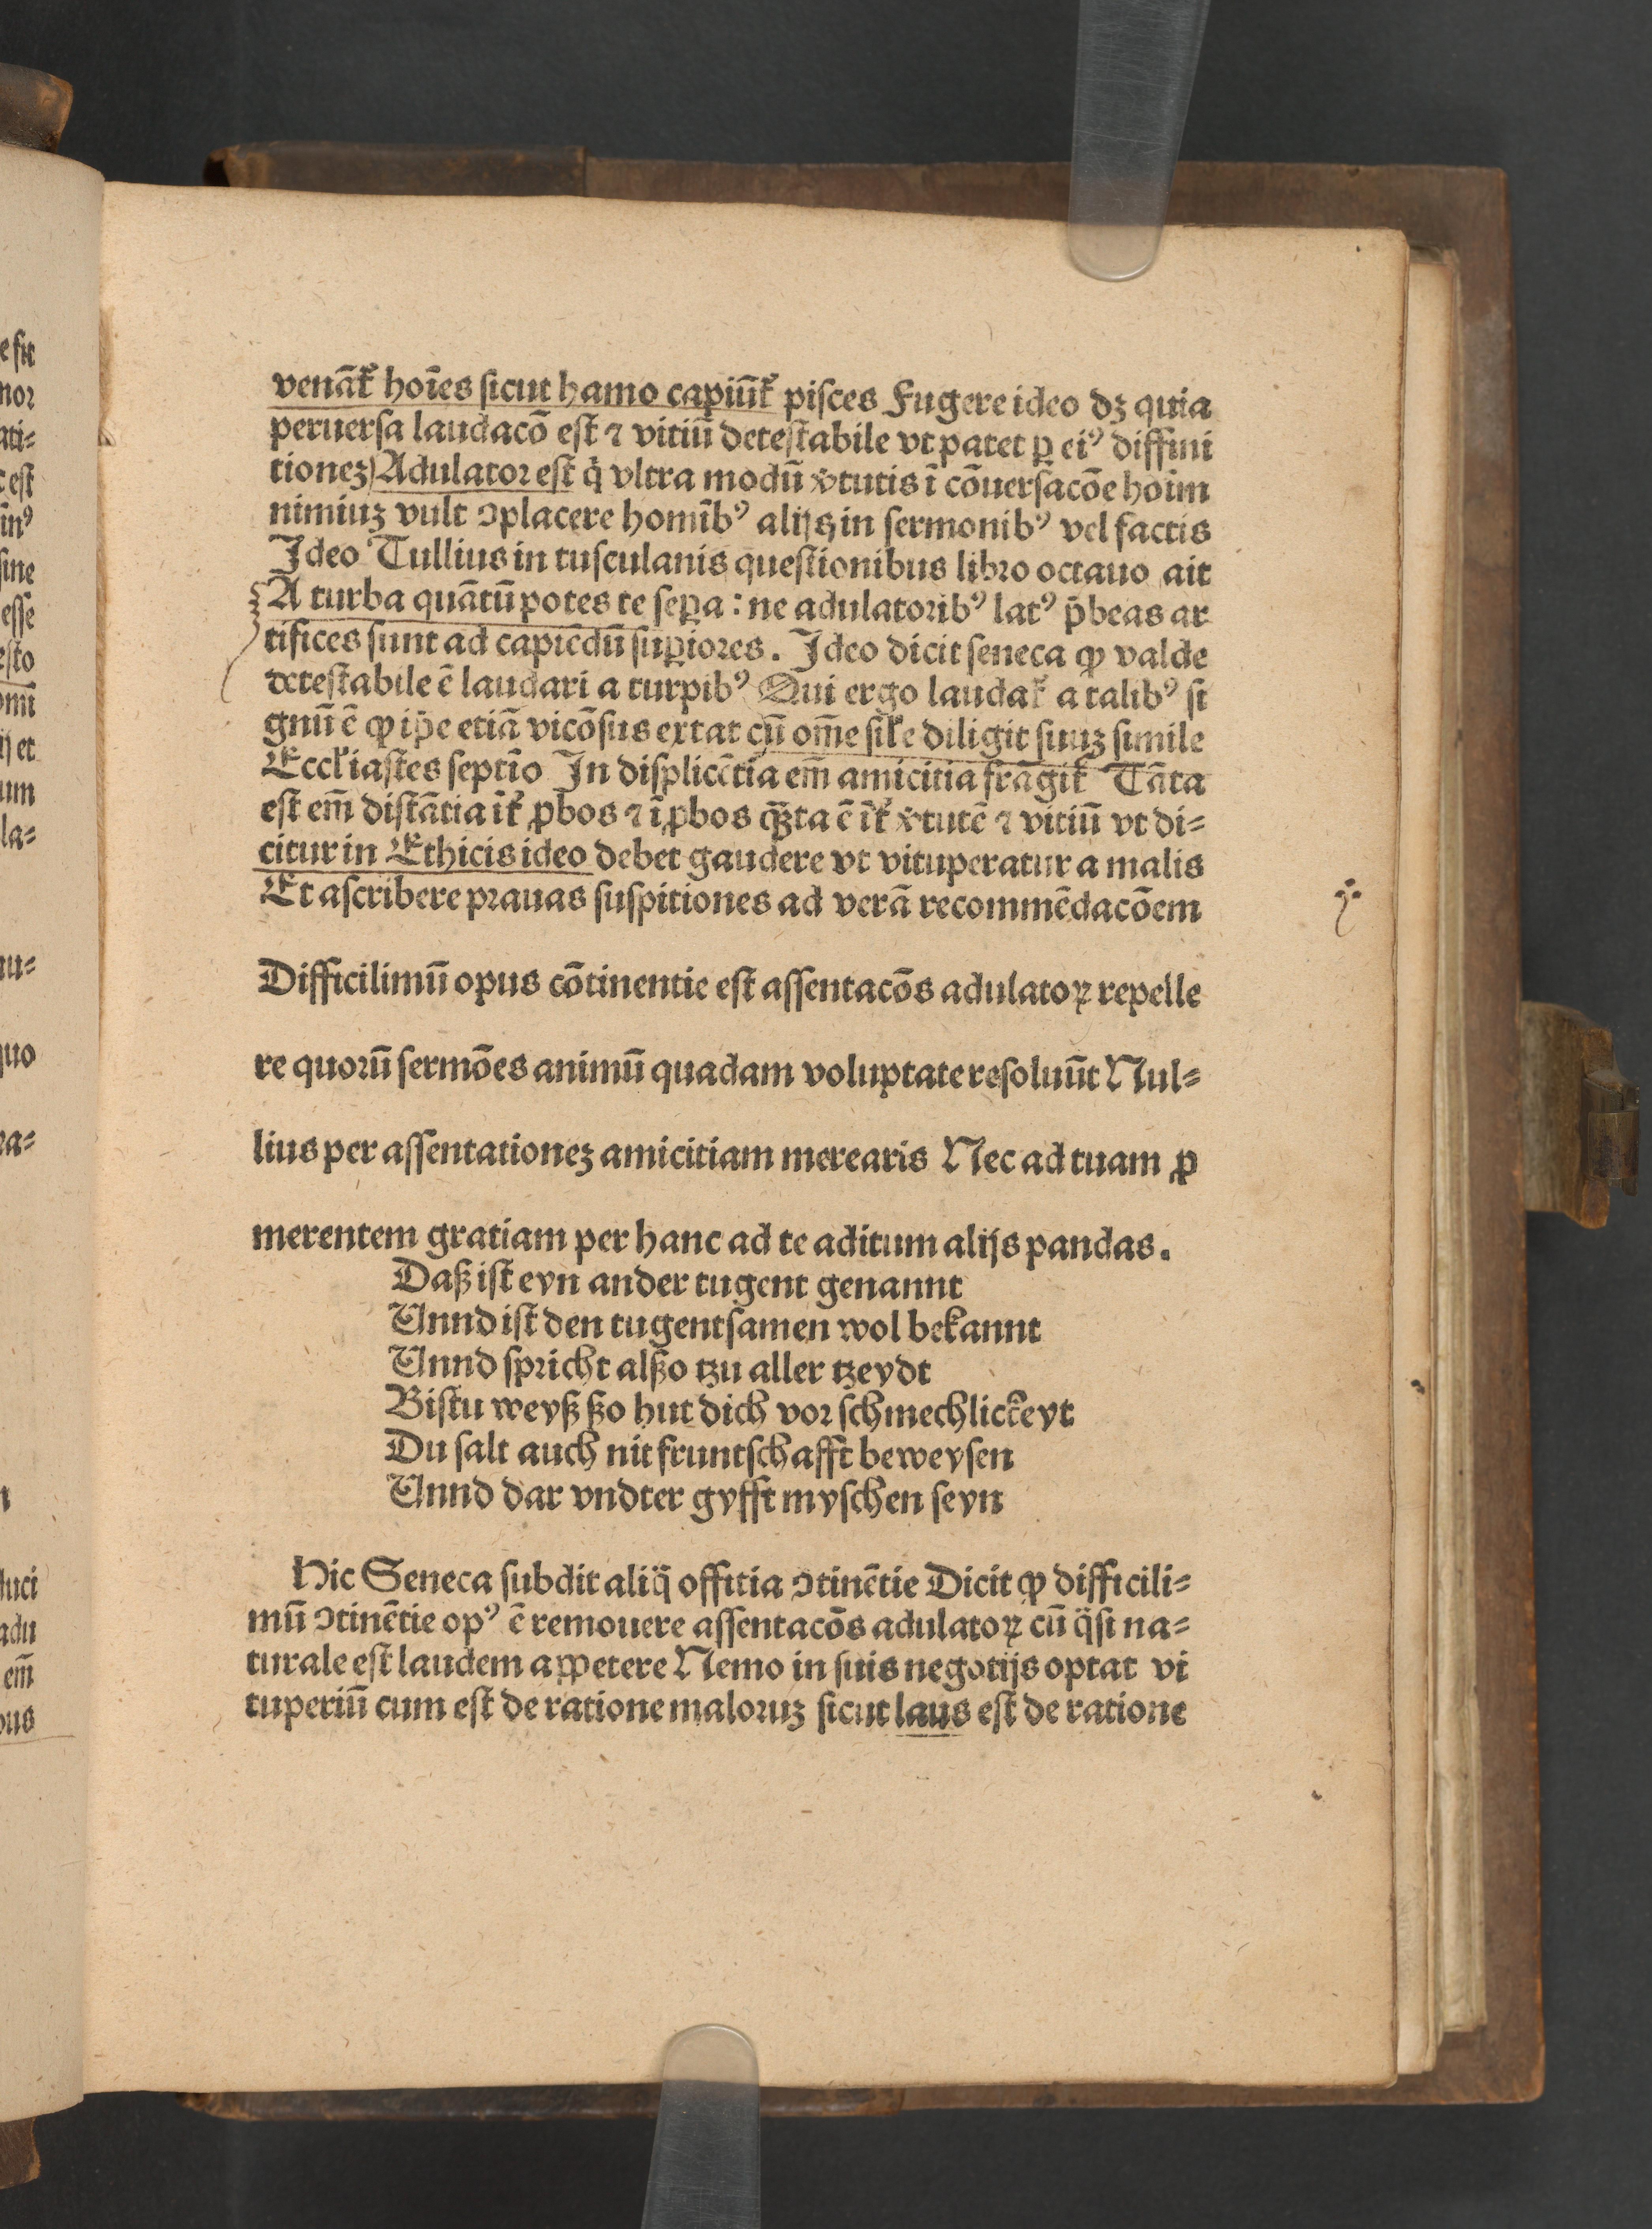 venāt̄ hoīes sicut hamo capiūt̄ pisces Fugere ideo dꝫ quia
peruersa laudacō est ⁊ vitiū detestabile vt patet ꝑ eiꝰ diffini
tionez Adulator est q̇ vltra modū v̓tutis ī cōuersacōe hoim
nimiuꝫ vult ↄplacere homībꝰ alijs in sermonibꝰ vel factis
Ideo Tullius in tusculanis questionibus libro octauo ait
A turba quātū potes te seꝑa : ne adulatoribꝰ latꝰ p̄beas ar
tifices sunt ad capiēdū suꝑiores. Ideo dicit seneca ꝙ valde
detestabile ē laudari a turpibꝰ Qui ergo laudat̄ a talibꝰ si
gnū ē ꝙ ip̄e etiā vicōsus extat cū om̄e sil̄e diligit suuꝫ simile
Eccl̄iastes septīo In displicētia em̄ amicitia frāgit̄ Tāta
est em̄ distātia īt̄ ꝓbos ⁊ īꝓbos q̄ꝫta ē īt̄ v̓tutē ⁊ vitiū vt di⸗
citur in Ethicis ideo debet gaudere vt vituperatur a malis
Et ascribere prauas suspitiones ad verā recommēdacōem
Difficilimū opus cōtinentie est assentacōs adulatoꝝ repelle
re quorū sermōes animū quadam voluptate resoluūt Nul⸗
lius per assentationeꝫ amicitiam merearis Nec ad tuam ꝓ
merentem gratiam per hanc ad te aditum alijs pandas.
Daß ist eyn ander tugent genannt
Vnnd ist den tugentsamen wol bekannt
Vnnd spricht alßo tzu aller tzeydt
Bistu weyß ßo hut dich vor schmechlickeyt
Du salt auch nit fruntschafft beweysen
Vnnd dar vndter gyfft myschen seyn
Hic Seneca subdit aliq̄ offitia ↄtinētie Dicit ꝙ difficili⸗
mū ↄtinētie opꝰ ē remouere assentacōs adulatoꝝ cū q̄si na⸗
turale est laudem aꝑpetere Nemo in suis negotijs optat vi
tuperiū cum est de ratione maloruꝫ sicut laus est de ratione